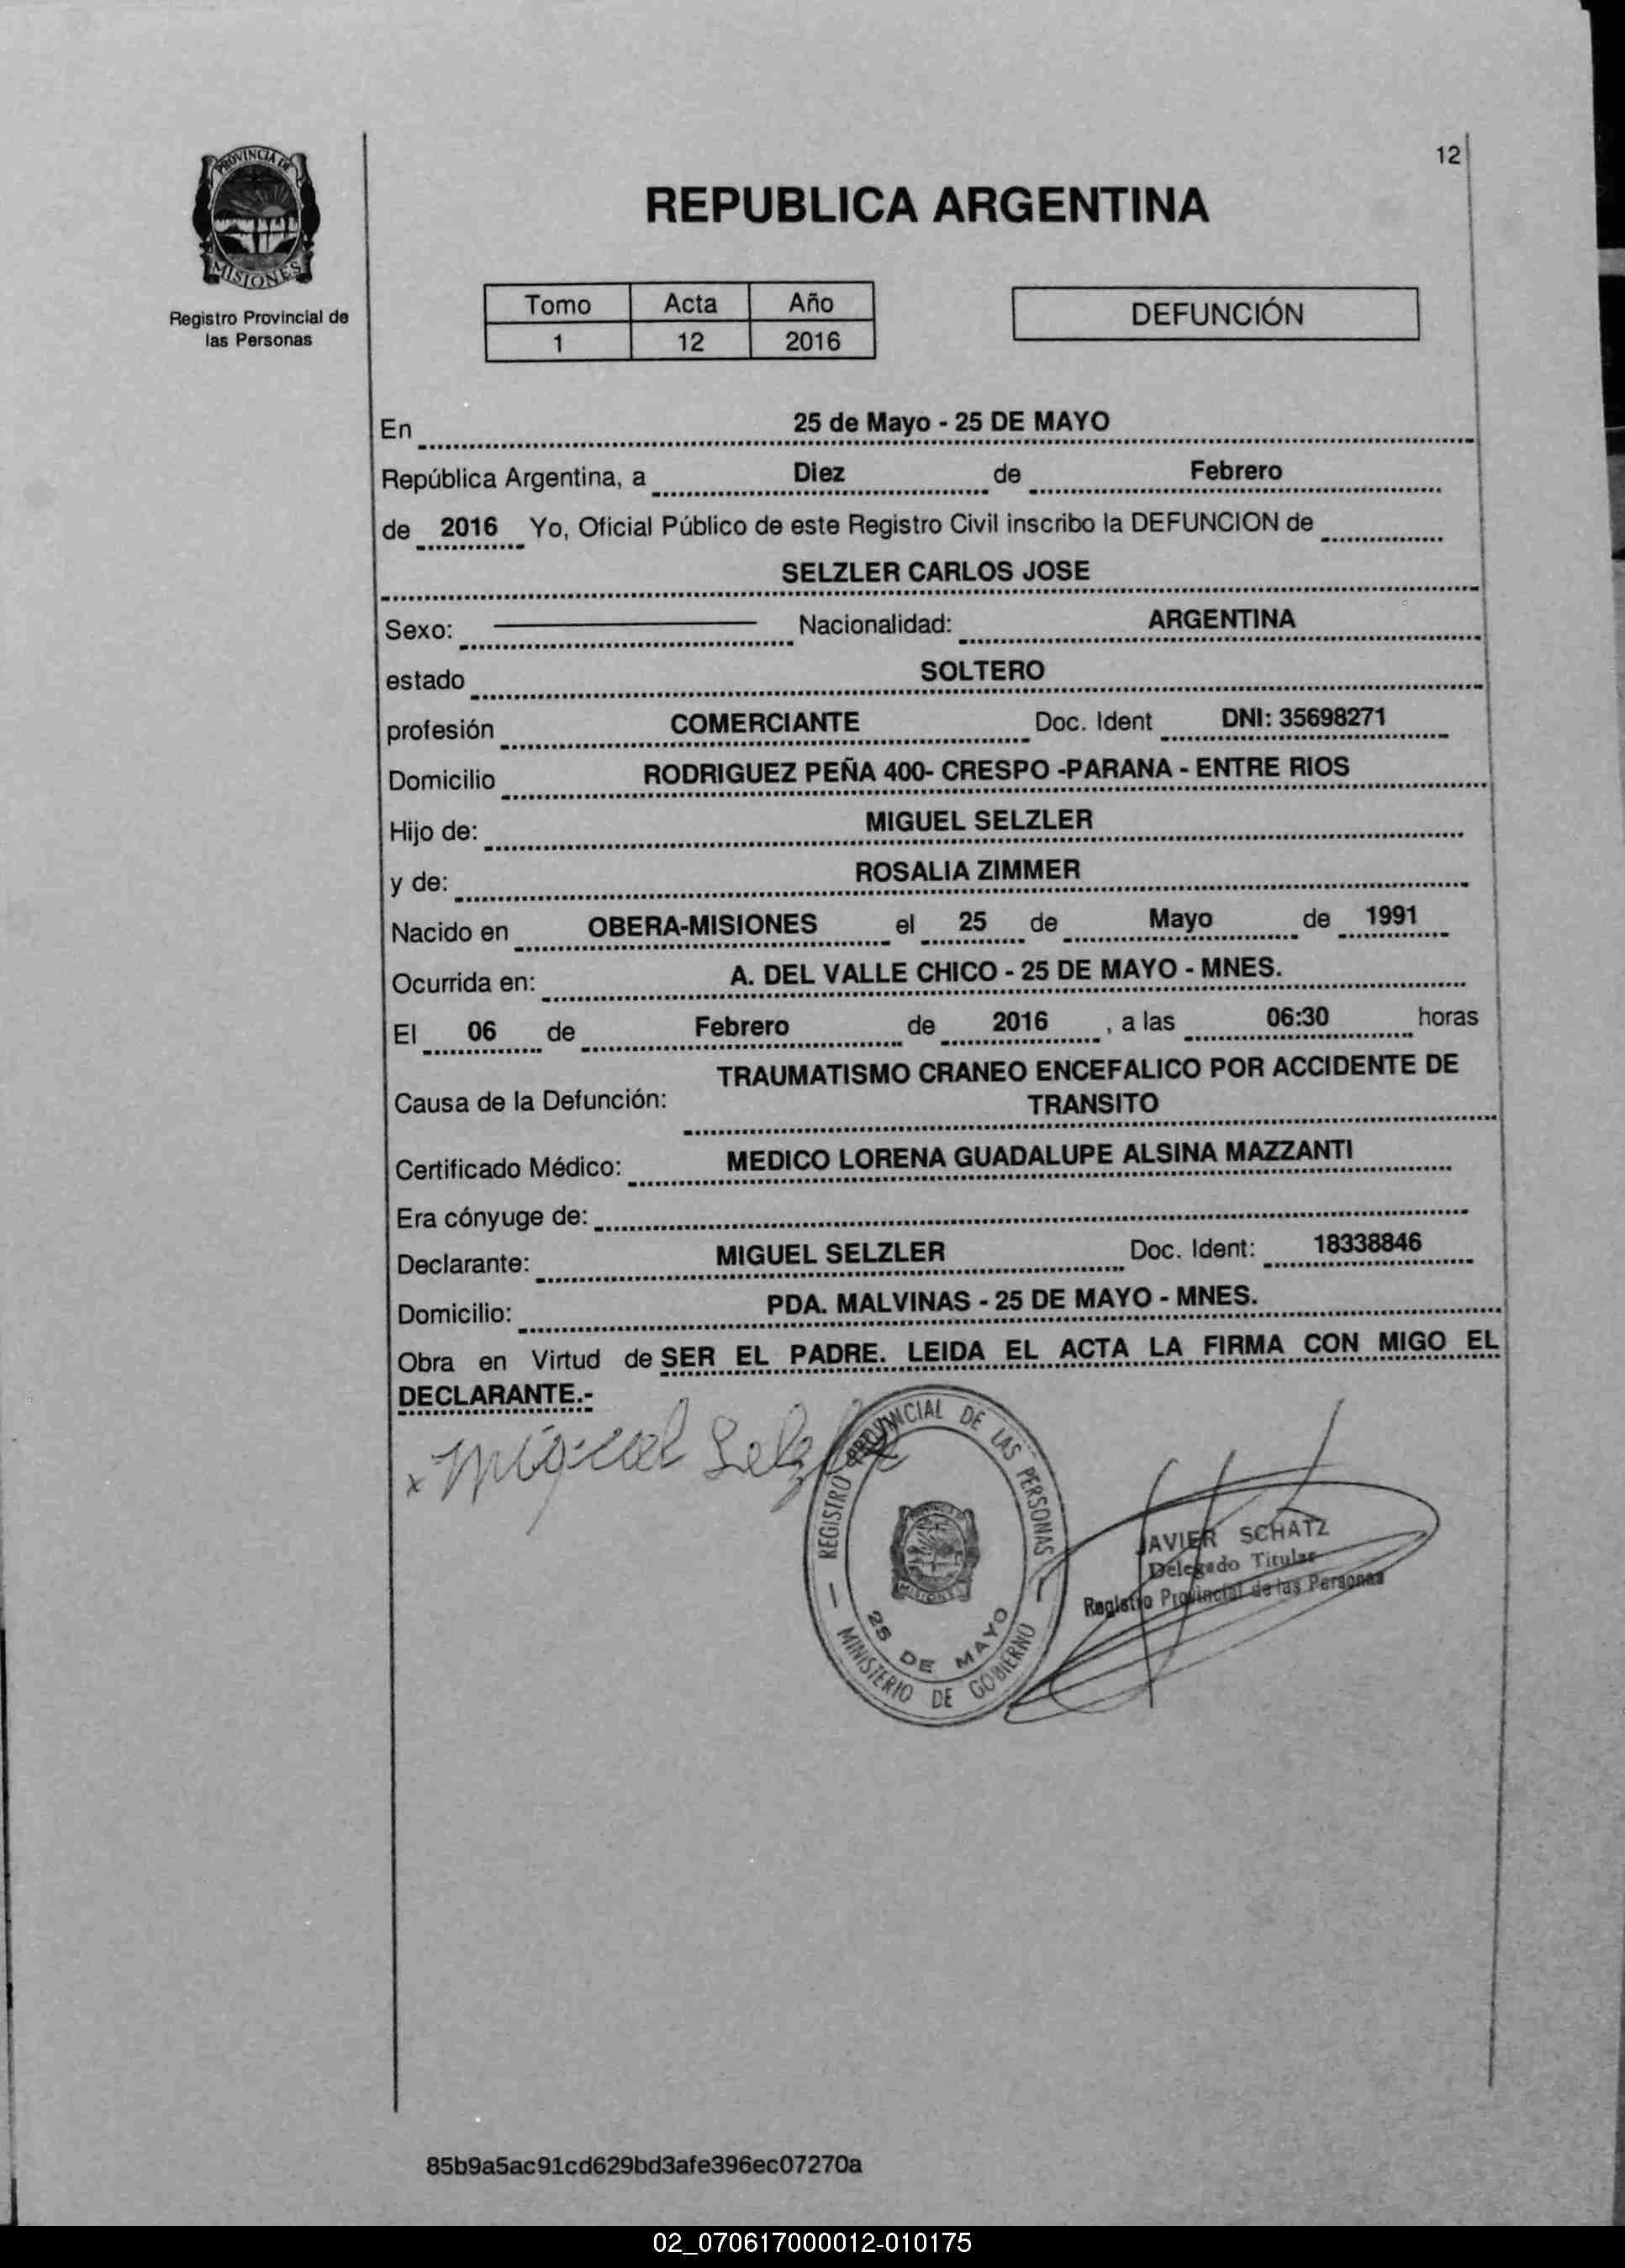 12
PROVINCIA DE
MISIONES
Registro Provincial de
las Personas
REPUBLICA ARGENTINA
Tomo Acta Año
1 12 2016
DEFUNCIÓN
En 25 de Mayo - 25 DE MAYO
República Argentina, a Diez de Febrero
de 2016 Yo, Oficial Público de este Registro Civil inscribo la DEFUNCION de
SELZLER CARLOS JOSE
Sexo: Nacionalidad: ARGENTINA
estado SOLTERO
profesión COMERCIANTE Doc. Ident DNI: 35698271
Domicilio RODRIGUEZ PEÑA 400- CRESPO -PARANA - ENTRE RIOS
Hijo de: MIGUEL SELZLER
y de: ROSALIA ZIMMER
Nacido en OBERA-MISIONES el 25 de Mayo de 1991
Ocurrida en: A. DEL VALLE CHICO - 25 DE MAYO - MNES.
El 06 de Febrero de 2016 , a las 06:30 horas
Causa de la Defunción: TRAUMATISMO CRANEO ENCEFALICO POR ACCIDENTE DE
TRANSITO
Certificado Médico: MEDICO LORENA GUADALUPE ALSINA MAZZANTI
Era cónyuge de:
Declarante: MIGUEL SELZLER Doc. Ident: 18338846
Domicilio: PDA. MALVINAS - 25 DE MAYO - MNES.
Obra en Virtud de SER EL PADRE. LEIDA EL ACTA LA FIRMA CON MIGO EL
DECLARANTE.-
x Miguel Selzler
REGISTRO PROVINCIAL DE LAS PERSONAS
MISIONES
25 DE MAYO
MINISTERIO DE GOBIERNO
JAVIER SCHATZ
Delegado Titular
Registro Provincial de las Personas
85b9a5ac91cd629bd3afe396ec07270a
02_070617000012-010175